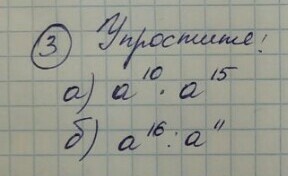 ③ Упростите!
а) a¹⁰ · a¹⁵
б) a¹⁶ : a¹¹